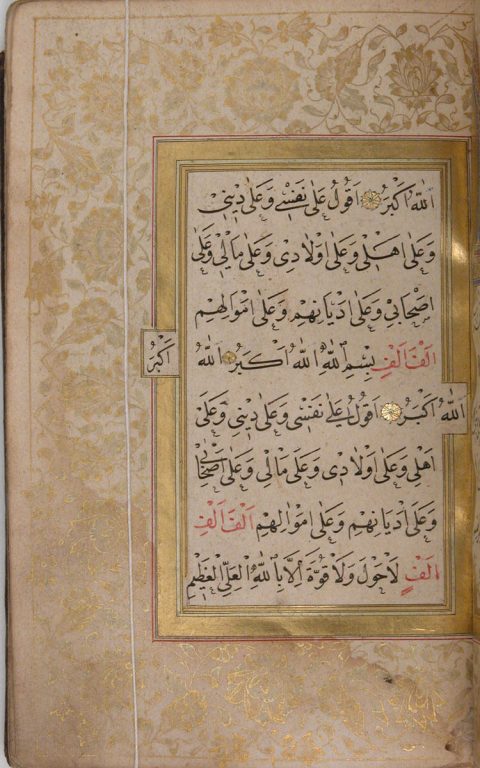 اَللّٰهُ اَكْبَرُ اَقُولُ عَلٰى نَفْسٖى وَعَلٰى دٖينٖى
وَعَلٰى اَهْلٖى وَعَلٰى اَوْلَادٖى وَعَلٰى مَالٖى وَعَلٰى
اَصْحَابٖى وَعَلٰى اَدْيَانِهِمْ وَعَلٰى اَمْوَالِهِمْ
اَلْفَ اَلْفِ بِسْمِ اللّٰهِ اَللّٰهُ اَكْبَرُ اَللّٰهُ
اَكْبَرُ
اَللّٰهُ اَكْبَرُ اَقُولُ عَلٰى نَفْسٖى وَعَلٰى دٖينٖى وَعَلٰى
اَهْلٖى وَعَلٰى اَوْلَادٖى وَعَلٰى مَالٖى وَعَلٰى اَصْحَابٖى
وَعَلٰى اَدْيَانِهِمْ وَعَلٰى اَمْوَالِهِمْ اَلْفَ اَلْفِ
اَلْفٍ لَاحَوْلَ وَلَا قُوَّةَ اِلَّا بِاللّٰهِ الْعَلِىِّ الْعَظٖيمِ